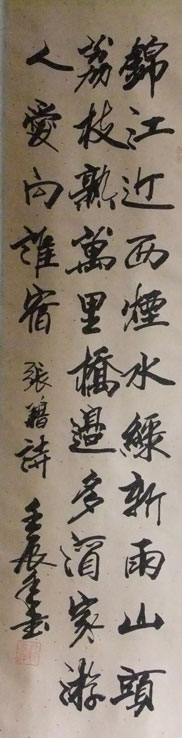 錦江近西煙水綠新雨山頭
荔枝熟萬里橋邊多酒家游
人愛向誰宿 張籍詩 壬辰年書